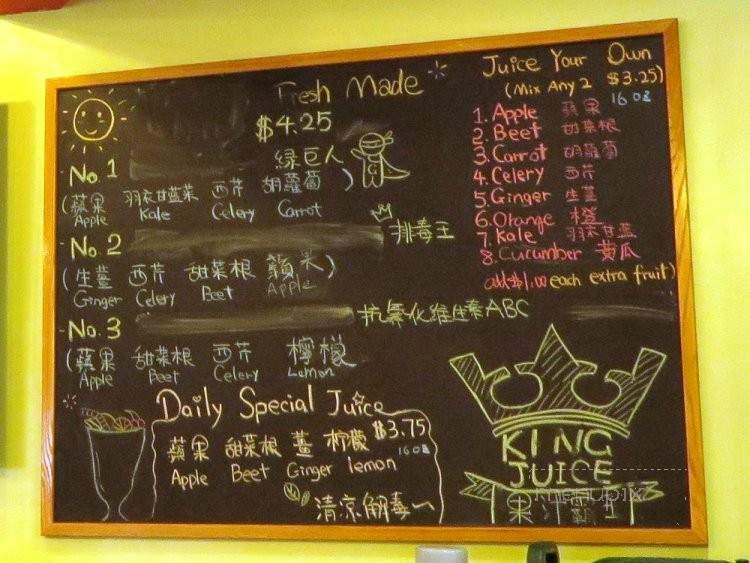 Fresh Made
$4.25
No. 1
綠巨人
(蘋果 羽衣甘蓝菜 西芹 胡蘿蔔)
Apple Kale Celery Carrot
No. 2
排毒王
(生薑 西芹 甜菜根 蘋果)
Ginger Celery Beet Apple
No. 3
抗氧化維生素ABC
(蘋果 甜菜根 西芹 檸檬
Apple Beet Celery Lemon
Daily Special Juice
$3.75
16 oz
蘋果 甜菜根 薑 柠檬
Apple Beet Ginger lemon
清凉解毒
Juice Your Own
(Mix Any 2 $3.25)
16 oz
1. Apple 蘋果
2. Beet 甜菜根
3. Carrot 胡蘿蔔
4. Celery 西芹
5. Ginger 生薑
6. Orange 橙
7. Kale 羽衣甘蓝
8. Cucumber 黄瓜
add $1.00 each extra fruit)
KING
JUICE
果汁霸王
menupix